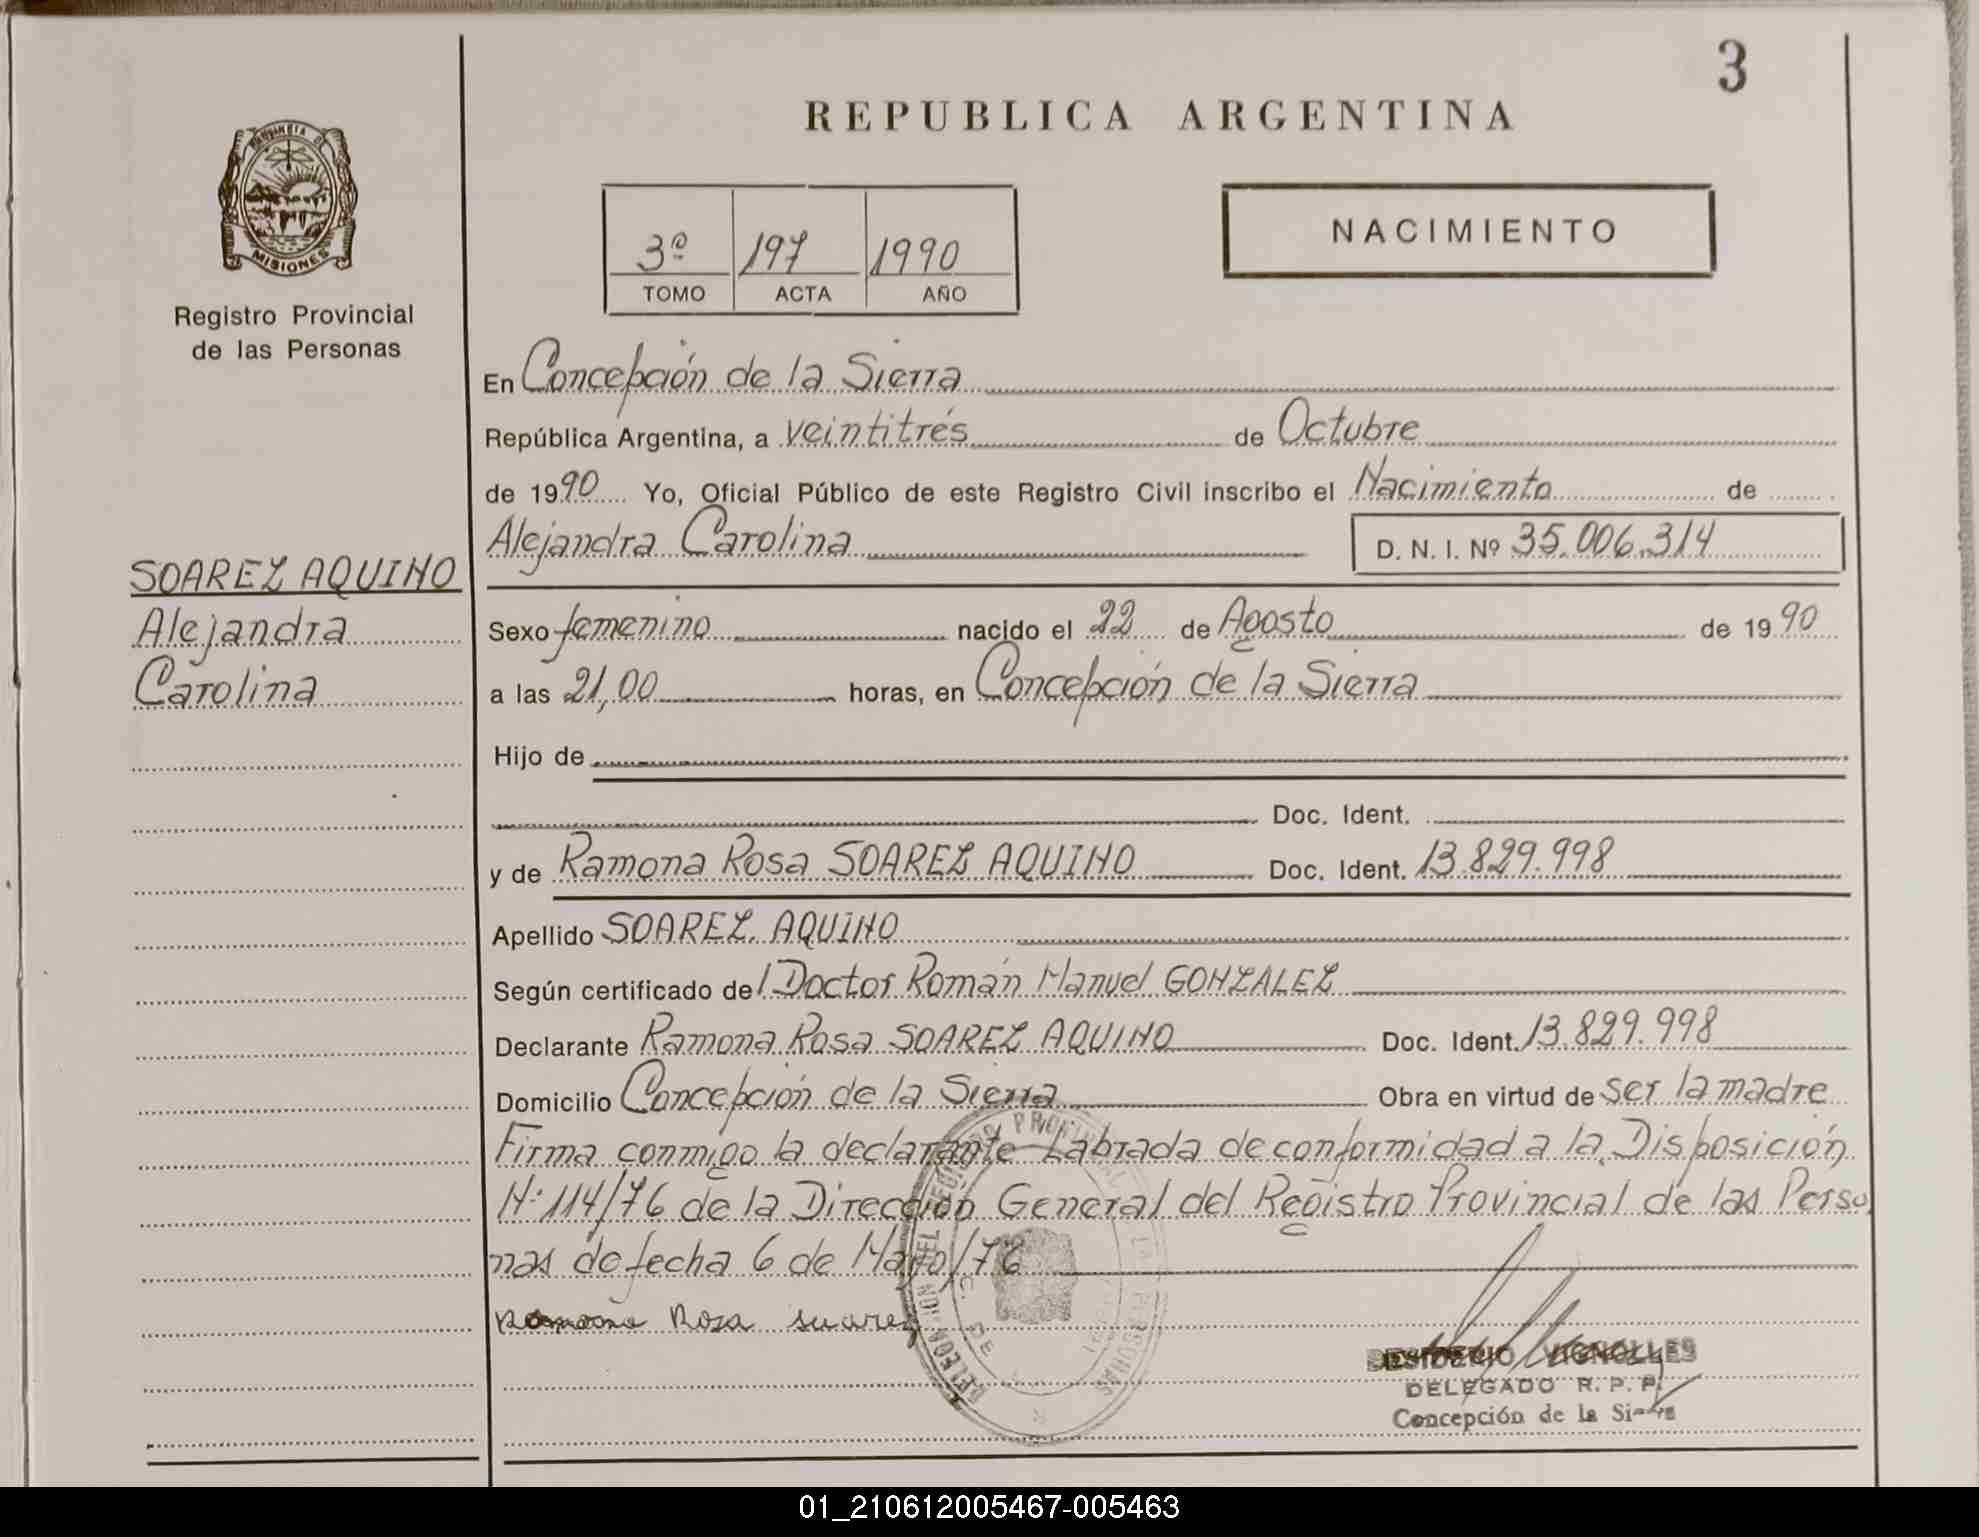 3
REPUBLICA ARGENTINA
PROVINCIA DE
MISIONES
Registro Provincial
de las Personas
3º 197 1990
TOMO ACTA AÑO
NACIMIENTO
En Concepción de la Sierra
República Argentina, a veintitrés de Octubre
de 1990 Yo, Oficial Público de este Registro Civil inscribo el Nacimiento de
Alejandra Carolina D. N. I. Nº 35.006.314
SOAREZ AQUINO
Alejandra
Carolina
Sexo femenino nacido el 22 de Agosto de 1990
a las 21,00 horas, en Concepción de la Sierra
Hijo de
Doc. Ident.
y de Ramona Rosa SOAREZ AQUINO Doc. Ident. 13.829.998
Apellido SOAREZ AQUINO
Según certificado del Doctor Román Manuel GONZALEZ
Declarante Ramona Rosa SOAREZ AQUINO Doc. Ident. 13.829.998
Domicilio Concepción de la Sierra Obra en virtud de ser la madre
Firma conmigo la declarante Labrada de conformidad a la Disposición
Nº 114/76 de la Dirección General del Registro Provincial de las Perso
nas de fecha 6 de Mayo/76
Ramona Roza suarez
DESIDERIO VIGNOLLES
DELEGADO R. P. P.
Concepción de la Sierra
01_210612005467-005463